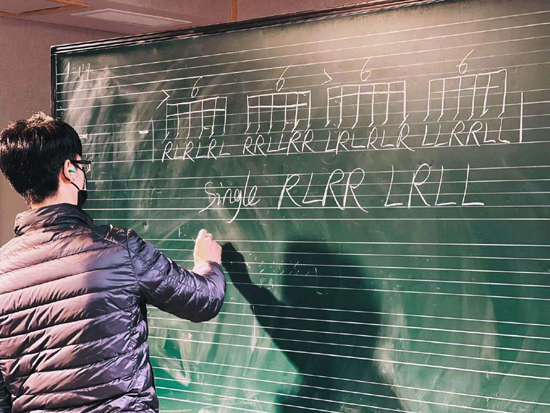 6 6 6 6
RLRLRL RRLLRR LRLRLR LLRRLL
Single RLRR LRLL